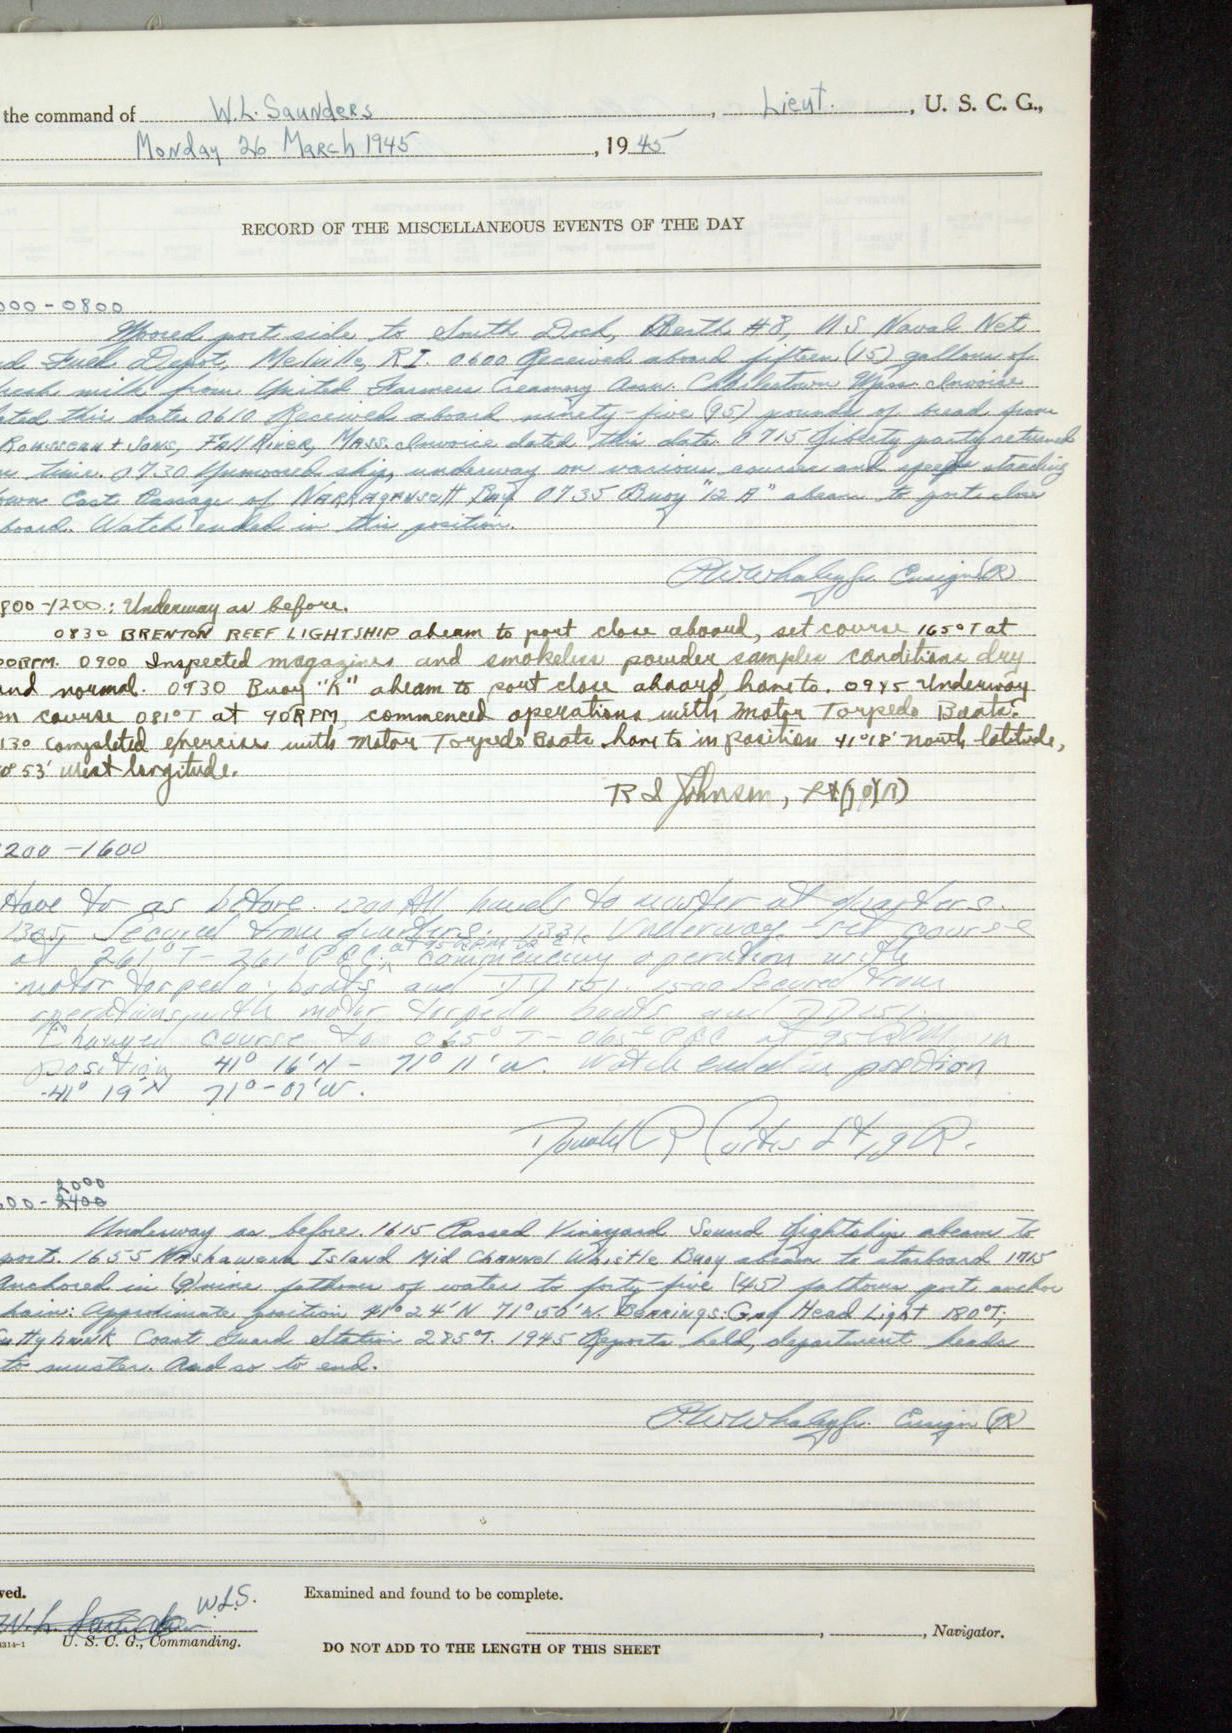 the command of W.L. Saunders, Lieut., U. S. C. G.,
Monday 26 March 1945, 1945
RECORD OF THE MISCELLANEOUS EVENTS OF THE DAY
000-0800
Moored port side to South Dock, Berth #8, US Naval Net
d Fuel Depot, Melville, R.I. 0600 Received aboard fifteen (15) gallons of
resh milk from United Farmers Creamery Assn. Charlestown Mass. Invoice
ated this date. 0610 Received aboard ninety-five (95) pounds of bread from
Rousseau + Sons, Fall River, Mass. Invoice dated this date. 0715 Liberty party returned
on time. 0730 Unmoored ship, underway on various courses and speeds standing
own East Passage of Narragansett Bay 0735 Buoy "12 A" abeam to port close
board. Watch ended in this position.
P.W. Whaley Jr. Ensign (R)
800-1200: Underway as before.
0830 BRENTON REEF LIGHTSHIP abeam to port close aboard, set course 165°T at
90RPM. 0900 Inspected magazines and smokeless powder samples conditions dry
and normal. 0930 Buoy "K" abeam to port close aboard, hove to. 0945 Underway
on course 081°T at 90RPM, commenced operations with Motor Torpedo Boats.
130 Completed exercises with Motor Torpedo Boats hove to in position 41°18' north latitude,
53' west longitude.
R S Johnson, Lt(jg)(R)
200-1600
Hove to as before. 1300 All hands to muster at quarters.
1305 Secured from quarters. 1331 Underway set course
at 261°T - 261° P.G.C. at 95 RPM commencing operation with
motor torpedo boats and 1500 Secured from
operations with motor torpedo boats and
Changed course to 065°T - 065° PGC at 95 RPM, in
position 41° 16'N - 71° 11'W. Watch ended in position
-41° 19'N 71°-07'W.
Donald R Curtis Lt jg R.
2000
600-2400
Underway as before. 1615 Passed Vineyard Sound Lightship abeam to
port. 1655 Nashawena Island Mid Channel Whistle Buoy abeam to starboard 1715
Anchored in (9) nine fathoms of water to forty-five (45) fathoms port anchor
hain: Approximate position 41°24'N 71°50'W. Bearings: Gay Head Light 180°T,
uttyhunk Coast Guard Station 285°T. 1945 Reports held, department heads
to muster. And so to end.
P.W. Whaley Jr. Ensign (R)
ved. Examined and found to be complete.
W.L. Saunders W.L.S.
U. S. C. G., Commanding. , , Navigator.
DO NOT ADD TO THE LENGTH OF THIS SHEET